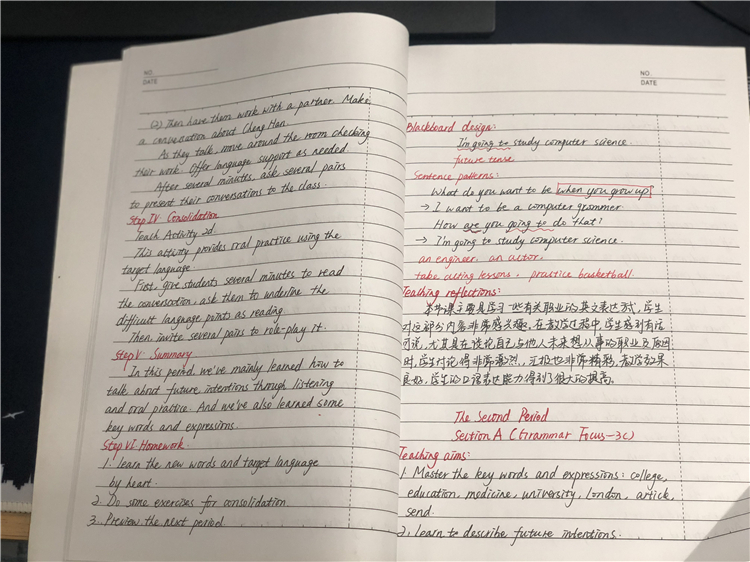 NO.
DATE
(2) Then have them work with a partner. Make
a conversation about Cheng Han.
As they talk, move around the room checking
their work. Offer language support as needed
After several minutes, ask several pairs
to present their conversations to the class.
Step IV Consolidation
Teach Activity 2d.
This activity provides oral practice using the
target language
First, give students several minutes to read
the conversation, ask them to underline the
difficult language points as reading.
Then invite several pairs to role-play it.
Step V Summary
In this period, we've mainly learned how to
talk about future intentions through listening
and oral practice. And we've also learned some
key words and expressions.
Step VI Homework
1. learn the new words and target language
by heart.
2. Do some exercises for consolidation.
3. Preview the next period.
NO.
DATE
Blackboard design:
I'm going to study computer science.
future tense
Sentence patterns:
What do you want to be when you grow up?
→ I want to be a computer grommer.
How are you going to do that?
→ I'm going to study computer science.
an engineer, an actor,
take acting lessons, practice basketball.
Teaching reflections:
本节课主要是学习一些有关职业的英文表达方式,学生
对这部分内容非常感兴趣,在教学过程中,学生感到有话
可说,尤其是在谈论自己与他人未来想从事的职业及原因
时,学生讨论得非常激烈,汇报也非常精彩,教学效果
良好,学生的口语表达能力得到了很大的提高。
The Second Period
Section A (Grammar Focus-3c)
Teaching aims:
1. Master the key words and expressions: college,
education, medicine, university, London, article,
send.
2. learn to describe future intentions.